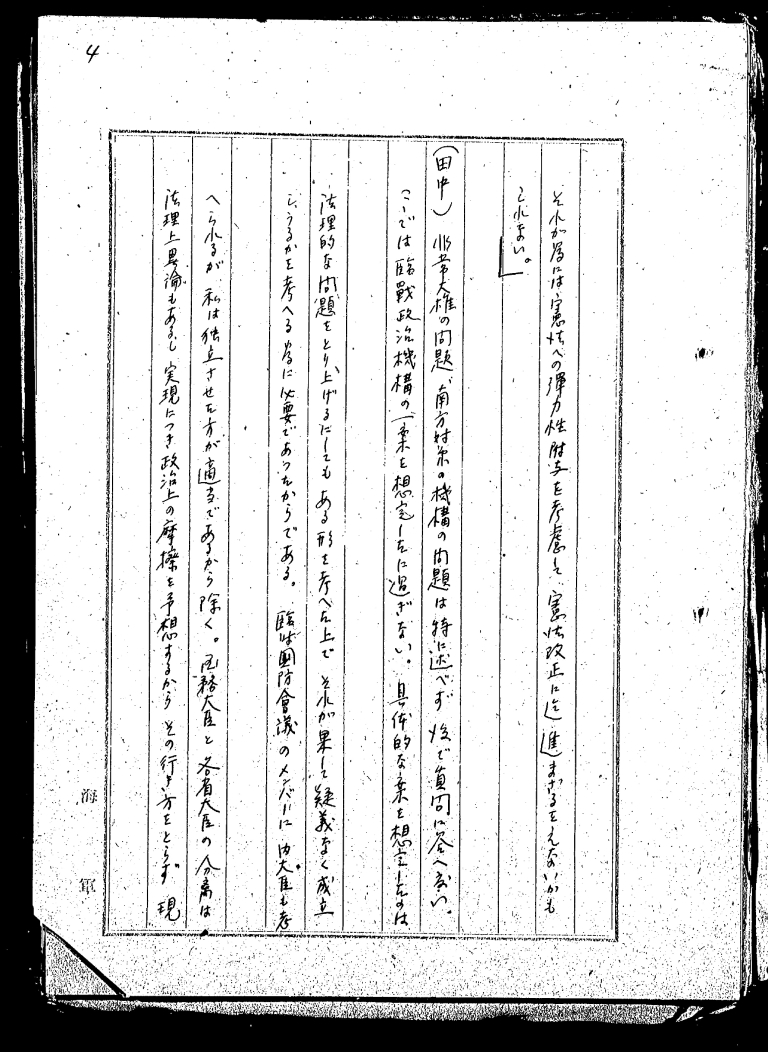 4
それが為には憲法への弾力性附与を考慮して、憲法改正に迄進まざるをえないかも
しれない。」
(田中) 非常大権の問題、南方対策の機構の問題は特に述べず 後で質問に答へたい。
こゝでは臨戦政治機構の一案を想定したに過ぎない。具体的な案を想定したのは
法理的な問題をとり上げるにしても ある形を考へた上で それが果して疑義なく成立
しうるかを考へる為に必要であつたからである。 臨時國防會議のメンバーに 内大臣も考
へられるが 私は独立させた方が適当であるから除く。国務大臣と各省大臣の分離は、
法理上異論もあるし 実現につき政治上の摩擦を予想するから その行き方をとらず 現
海軍